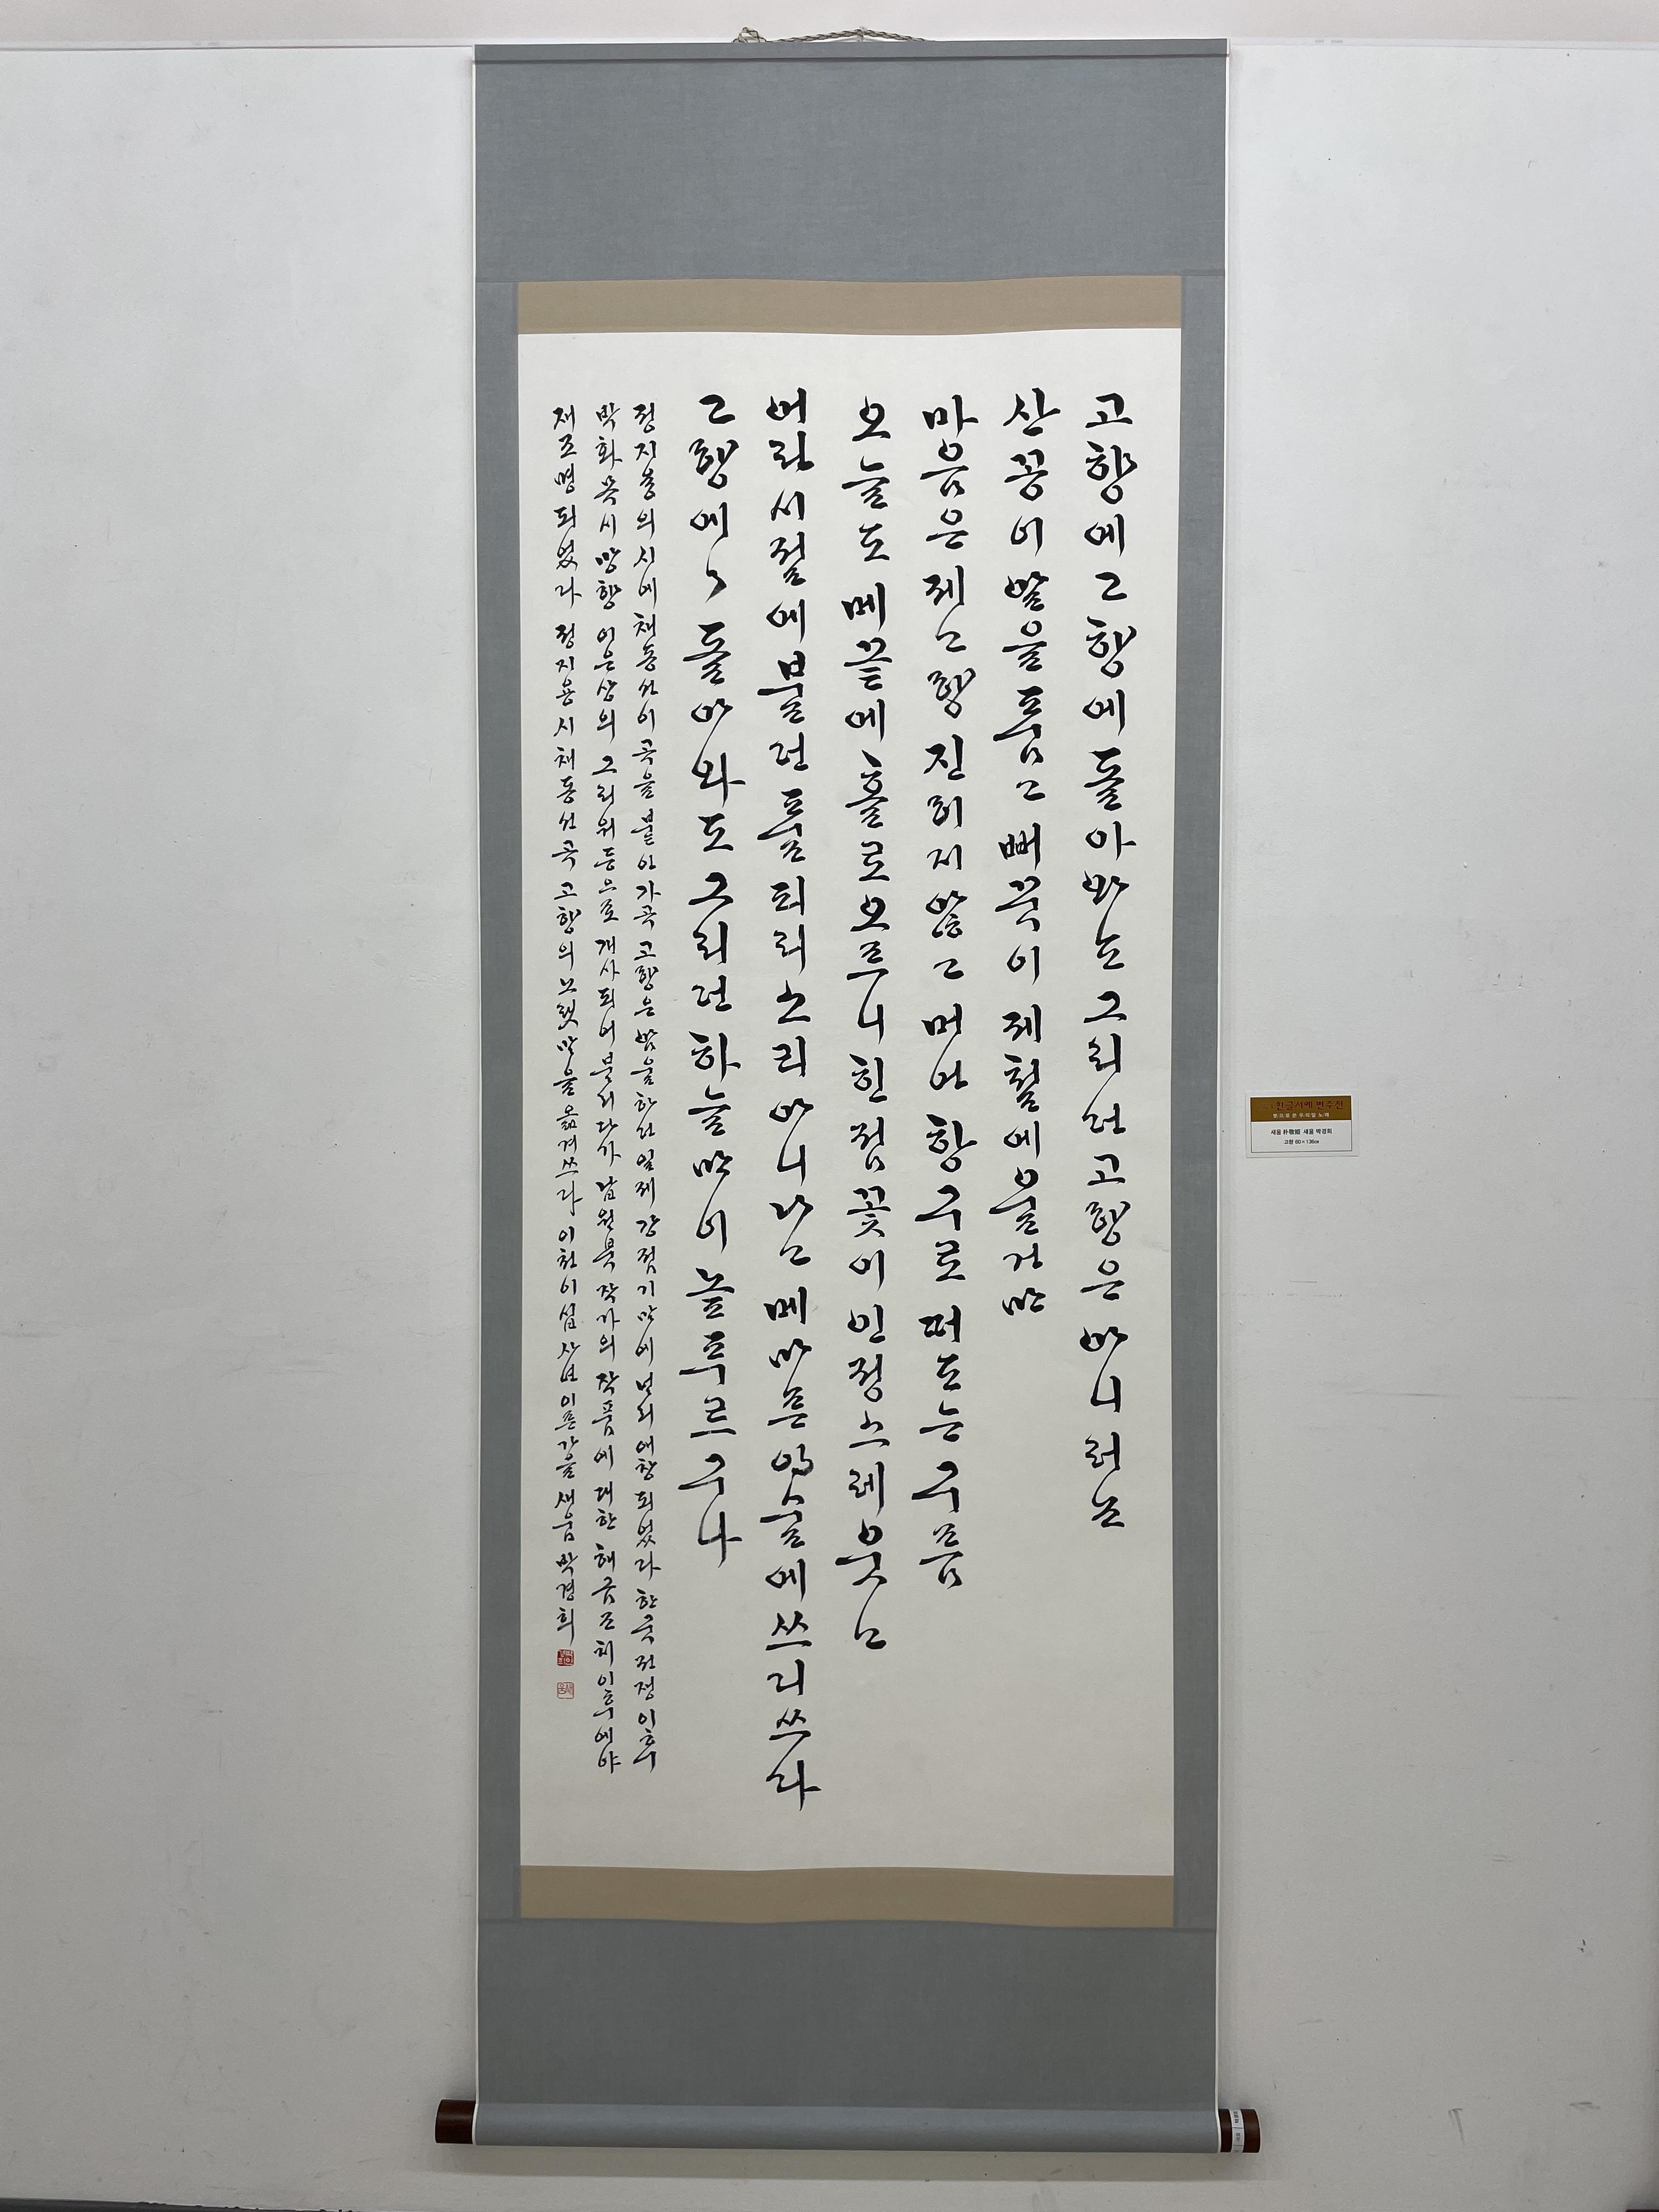 고향에 고향에 돌아와도 그리던 고향은 아니러뇨
산꽁이 알을 품고 뻐꾹이 제철에 울건만
마음은 제 고향 진히지 않고 머언 항구로 떠도는 구름
오늘도 메끝에 홀로 오르니 힌 점 꽃이 인정스레 웃고
어린 시절에 불던 풀피리 소리 아니 나고 메마른 입술에 쓰디 쓰다
고향에 고향에 돌아와도 그리던 하늘만이 높푸르구나
정지용의 시에 채동선이 곡을 붙인 가곡 고향은 암울하던 일제 강점기 말에 널리 애창되었다 한국전쟁 이후
박화목 시 망향 이은상의 그리워 등으로 개사되어 불리다가 납월북 작가의 작품에 대한 해금조치 이후에야
재조명되었다 정지용 시 채동선 곡 고향의 노랫말을 옮겨쓰다 이천이십사년 이른가을 새움 박경희
한글서예 변주전
붓으로 쓴 우리말 노래
새움 朴敬姬 새움 박경희
고향 60×136㎝